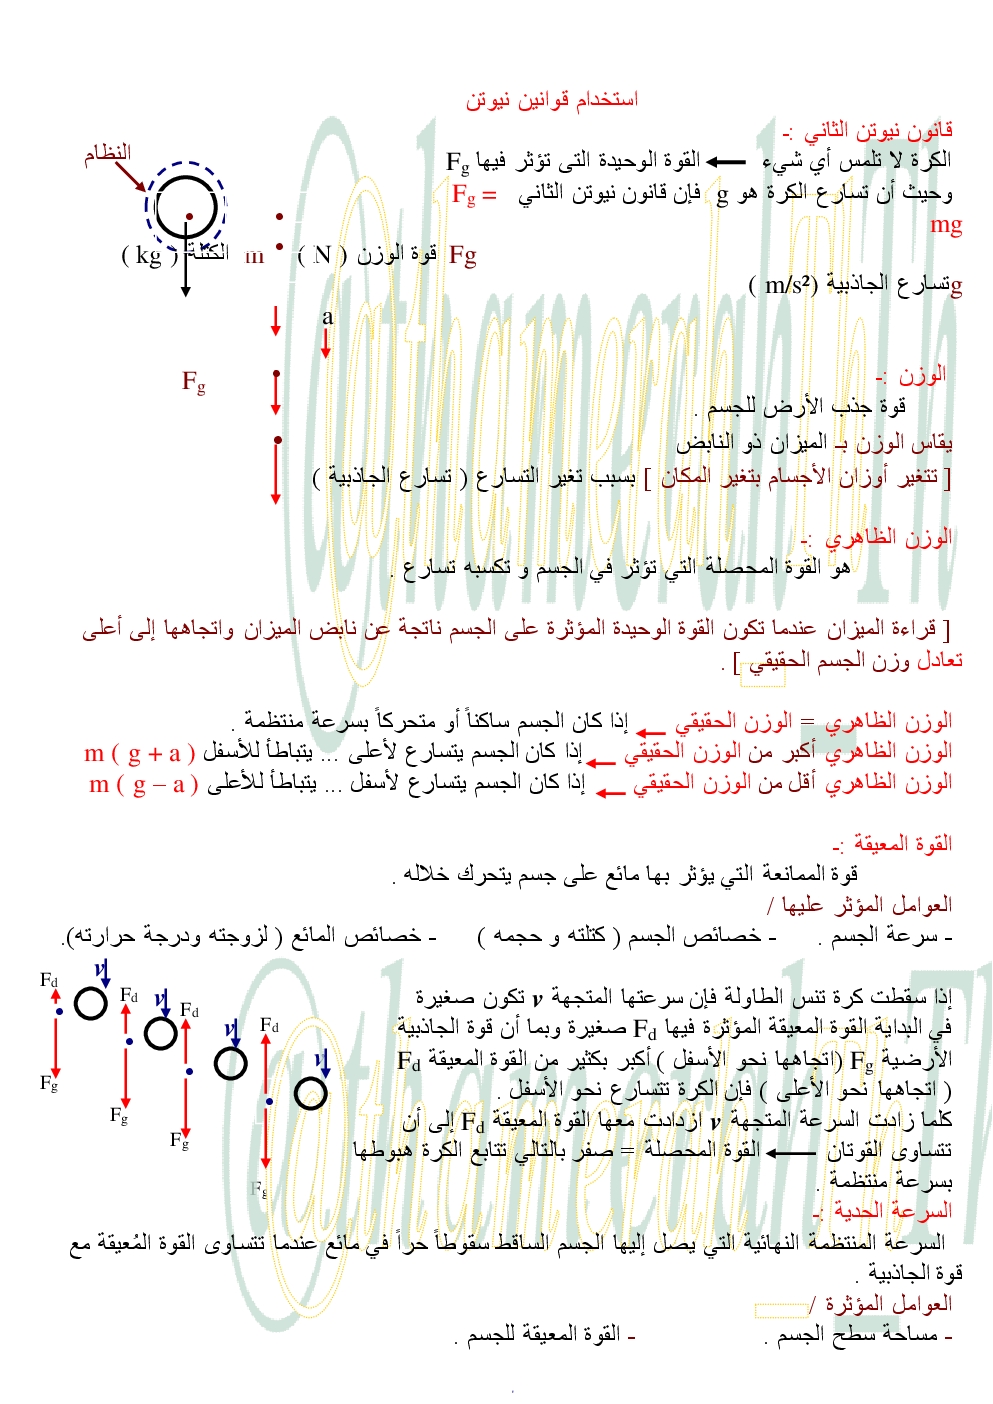 استخدام قوانين نيوتن
قانون نيوتن الثاني :-
النظام
الكرة لا تلمس أي شيء ← القوة الوحيدة التى تؤثر فيها Fg
وحيث أن تسارع الكرة هو g فإن قانون نيوتن الثاني Fg =
mg
Fg قوة الوزن ( N ) m الكتلة ( kg )
gتسارع الجاذبية (m/s² )
a
الوزن :-
Fg
قوة جذب الأرض للجسم .
يقاس الوزن بـ الميزان ذو النابض
[ تتغير أوزان الأجسام بتغير المكان ] بسبب تغير التسارع ( تسارع الجاذبية )
الوزن الظاهري :-
هو القوة المحصلة التي تؤثر في الجسم و تكسبه تسارع .
[ قراءة الميزان عندما تكون القوة الوحيدة المؤثرة على الجسم ناتجة عن نابض الميزان واتجاهها إلى أعلى
تعادل وزن الجسم الحقيقي ] .
الوزن الظاهري = الوزن الحقيقي ← إذا كان الجسم ساكناً أو متحركاً بسرعة منتظمة .
الوزن الظاهري أكبر من الوزن الحقيقي ← إذا كان الجسم يتسارع لأعلى ... يتباطأ للأسفل m ( g + a )
الوزن الظاهري أقل من الوزن الحقيقي ← إذا كان الجسم يتسارع لأسفل ... يتباطأ للأعلى m ( g – a )
القوة المعيقة :-
قوة الممانعة التي يؤثر بها مائع على جسم يتحرك خلاله .
العوامل المؤثر عليها /
- سرعة الجسم . - خصائص الجسم ( كتلته و حجمه ) - خصائص المائع ( لزوجته ودرجة حرارته).
Fd v Fd v Fd v Fd v
Fg Fg Fg Fg
إذا سقطت كرة تنس الطاولة فإن سرعتها المتجهة v تكون صغيرة
في البداية القوة المعيقة المؤثرة فيها Fd صغيرة وبما أن قوة الجاذبية
الأرضية Fg (اتجاهها نحو الأسفل ) أكبر بكثير من القوة المعيقة Fd
( اتجاهها نحو الأعلى ) فإن الكرة تتسارع نحو الأسفل .
كلما زادت السرعة المتجهة v ازدادت معها القوة المعيقة Fd إلى أن
تتساوى القوتان ← القوة المحصلة = صفر بالتالي تتابع الكرة هبوطها
بسرعة منتظمة .
السرعة الحدية :-
السرعة المنتظمة النهائية التي يصل إليها الجسم الساقط سقوطاً حراً في مائع عندما تتساوى القوة المُعيقة مع
قوة الجاذبية .
العوامل المؤثرة /
- مساحة سطح الجسم . - القوة المعيقة للجسم .